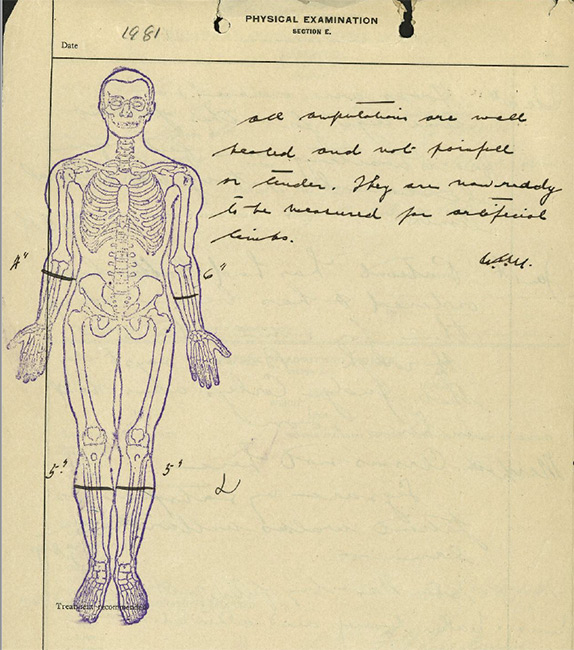 PHYSICAL EXAMINATION
SECTION E.
1981
Date
all amputations are well
healed and not painfull
or tender. They are now ready
to be measured for artificial
limbs.
4"
6"
5"
5"
Treatment recommended